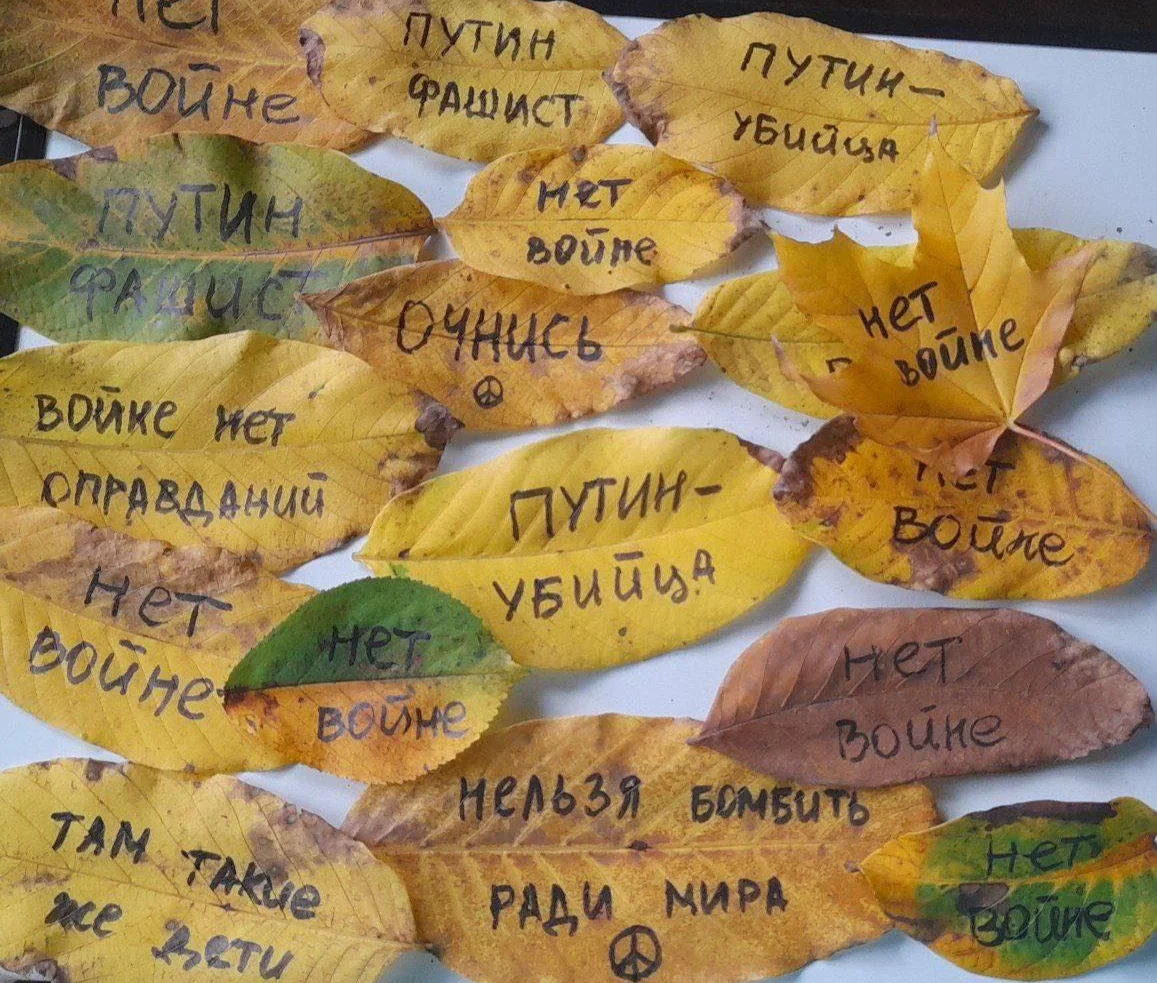 нет
войне
ПУТИН
ФАШИСТ
ПУТИН–
УБИЙЦА
ПУТИН
ФАШИСТ
нет
войне
ОЧНИСЬ
нет
войне
войне нет
ОПРАВДАНИЙ
ПУТИН–
УБИЙЦА
нет
войне
нет
войне
нет
войне
нет
войне
ТАМ ТАКИЕ
же дети
нельзя БОМБИТЬ
РАДИ МИРА
нет
войне